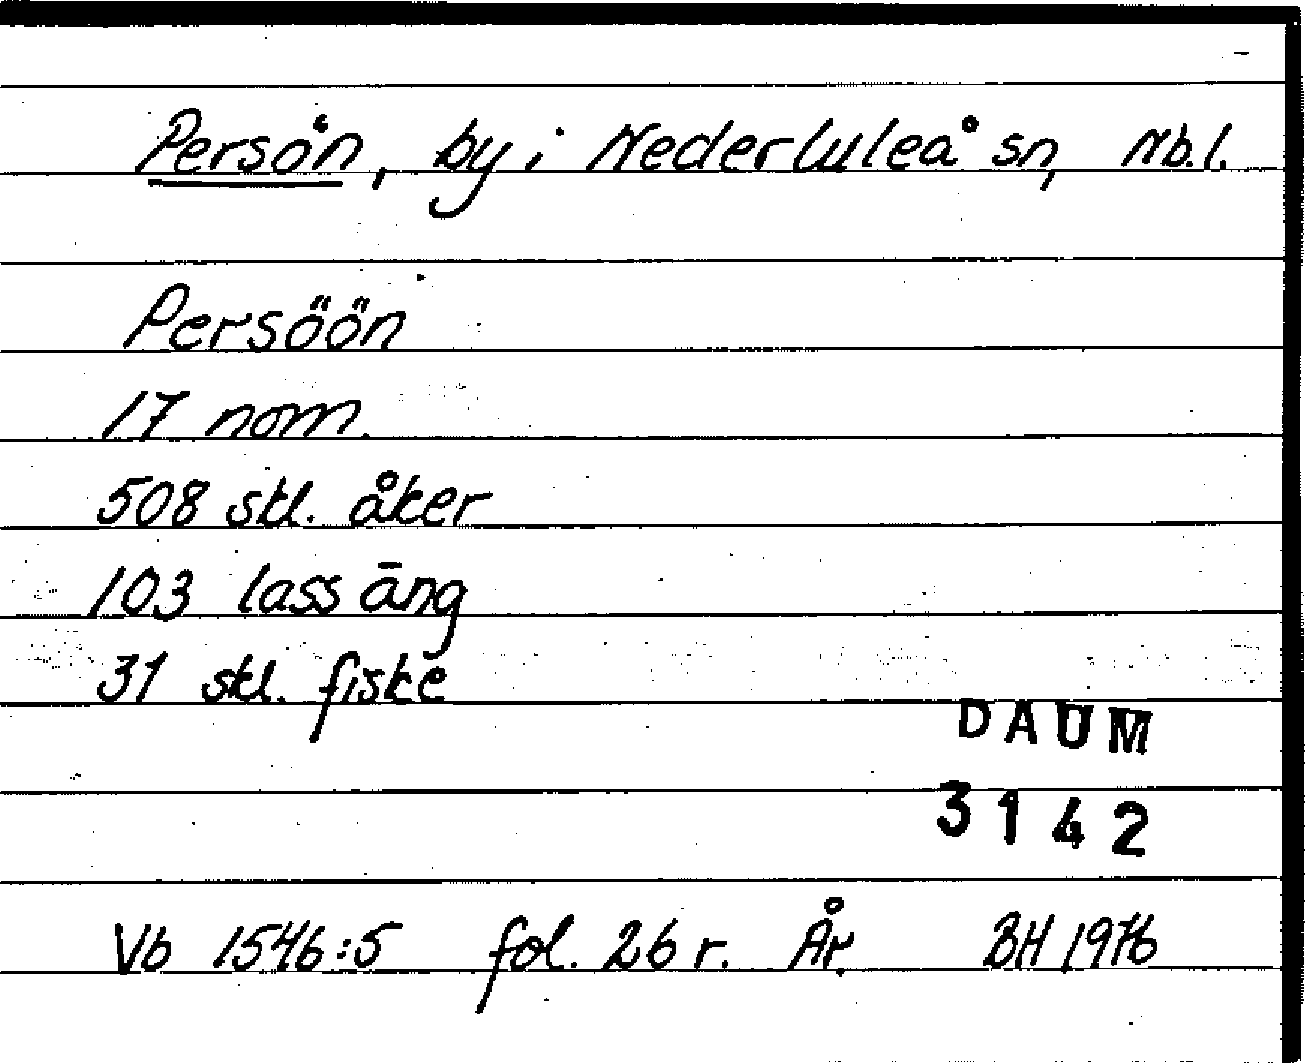 Persön, by i Nederluleå sn, Nb.l.
Persöön
17 nom.
508 skl. åker
103 lass äng
31 skl. fiske
DAUM
3142
Vb 1546:5 fol. 26 r. År. BH 1976